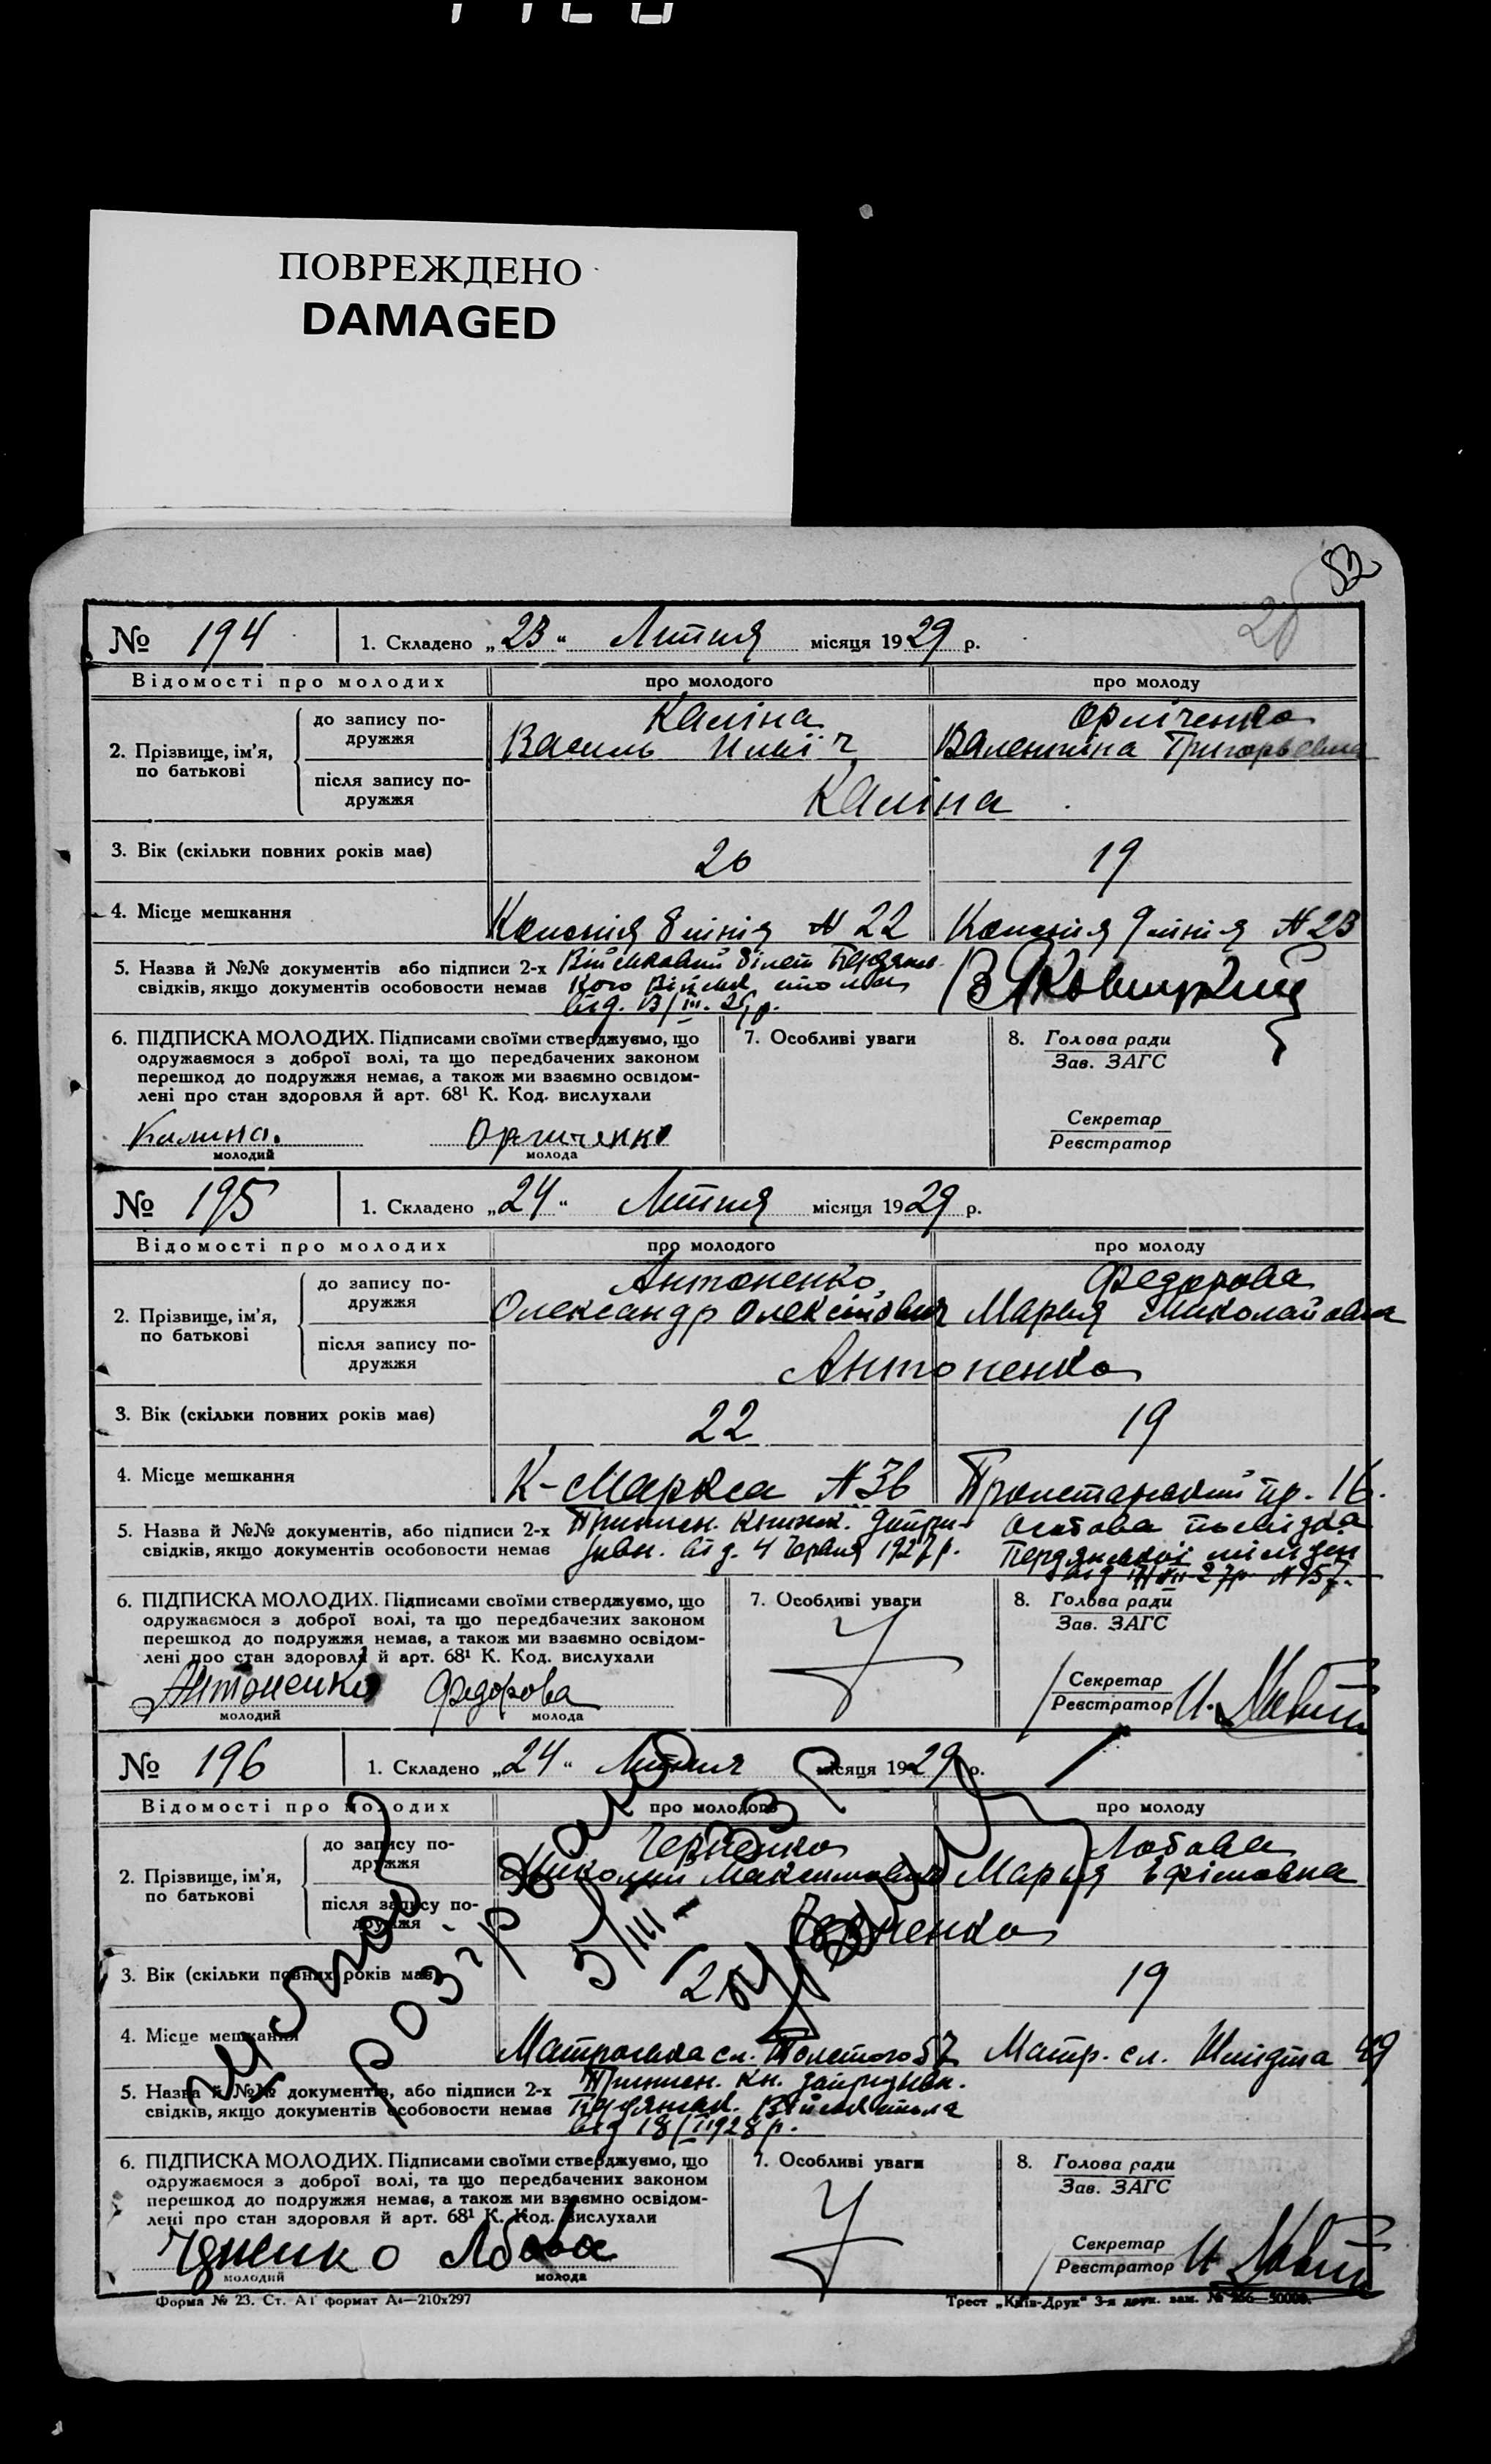 ПОВРЕЖДЕНО
DAMAGED
52
26
№ 194 1. Складено „23“ Лютня місяця 1929 р.
Відомості про молодих про молодого про молоду
2. Прізвище, ім’я, по батькові
до запису по-
дружжя
Каліна
Василь Ілліч
Орліченко
Валентіна Григорьевна
після запису по-
дружжя
Каліна
3. Вік (скільки повних років має) 20 19
4. Місце мешкання Колонія 8 лінія № 22 Колонія 9 лінія № 23
5. Назва й №№ документів або підписи 2-х
свідків, якщо документів особовости немає
Військовий білет
від.
6. ПІДПИСКА МОЛОДИХ. Підписами своїми стверджуємо, що
одружаємося з доброї волі, та що передбачених законом
перешкод до подружжя немає, а також ми взаємно освідом-
лені про стан здоровля й арт. 68¹ К. Код. вислухали
Калина. Орличенко
молодий молода
7. Особливі уваги
8. Голова ради
Зав. ЗАГС
Секретар
Реєстратор
№ 195 1. Складено „24“ Лютня місяця 1929 р.
Відомості про молодих про молодого про молоду
2. Прізвище, ім’я,
по батькові
до запису по-
дружжя
Антоненко
Олександр Олексійович
Федорова
Марья Миколайовна
після запису по-
дружжя
Антоненко
3. Вік (скільки повних років має) 22 19
4. Місце мешкання К-Маркса № 36 Пролетарський пр. 16.
5. Назва й №№ документів, або підписи 2-х
свідків, якщо документів особовости немає
Приписн. Книжк.
від. 4 Червня 1927 р.
Особова посвідка
6. ПІДПИСКА МОЛОДИХ. Підписами своїми стверджуємо, що
одружаємося з доброї волі, та що передбачених законом
перешкод до подружжя немає, а також ми взаємно освідом-
лені про стан здоровля й арт. 68¹ К. Код. вислухали
Антоненко Федорова
молодий молода
7. Особливі уваги
8. Голова ради
Зав. ЗАГС
Секретар
Реєстратор
№ 196 1. Складено „24“ Лютня місяця 1929 р.
Відомості про молодих про молодого про молоду
2. Прізвище, ім’я,
по батькові
до запису по-
дружжя
Миколай Максимович
Лобова
Марья Ефімовна
після запису по-
дружжя
3. Вік (скільки повних років має) 19
4. Місце мешкання Матроська сл. Толстого 57 Матр. сл. Шмідта 49
5. Назва й №№ документів, або підписи 2-х
свідків, якщо документів особовости немає
Приписн. кн.
від 18/II 1928 р.
Шлюб розірвано
6. ПІДПИСКА МОЛОДИХ. Підписами своїми стверджуємо, що
одружаємося з доброї волі, та що передбачених законом
перешкод до подружжя немає, а також ми взаємно освідом-
лені про стан здоровля й арт. 68¹ К. Код. вислухали
Лобова
молодий молода
7. Особливі уваги
8. Голова ради
Зав. ЗАГС
Секретар
Реєстратор
Форма № 23. Ст. А1 формат А4—210х297
Трест „Київ-Друк“ 3-я друк. зам.